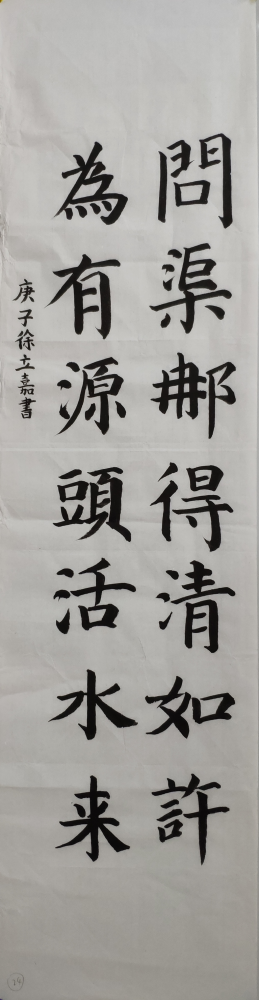 問渠郍得清如許
為有源頭活水来
庚子徐立嘉書
14